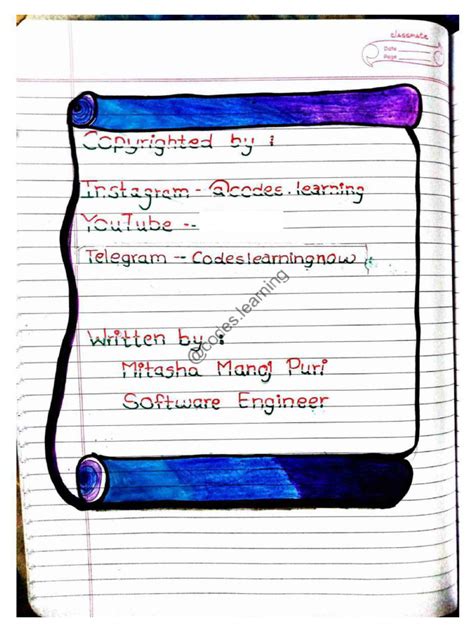 classmate
Date
Page
Copyrighted by :
Instagram - @codes.learning
YouTube --
Telegram -- Codeslearningnow
@codes.learning
Written by :
Mitasha Manoj Puri
Software Engineer